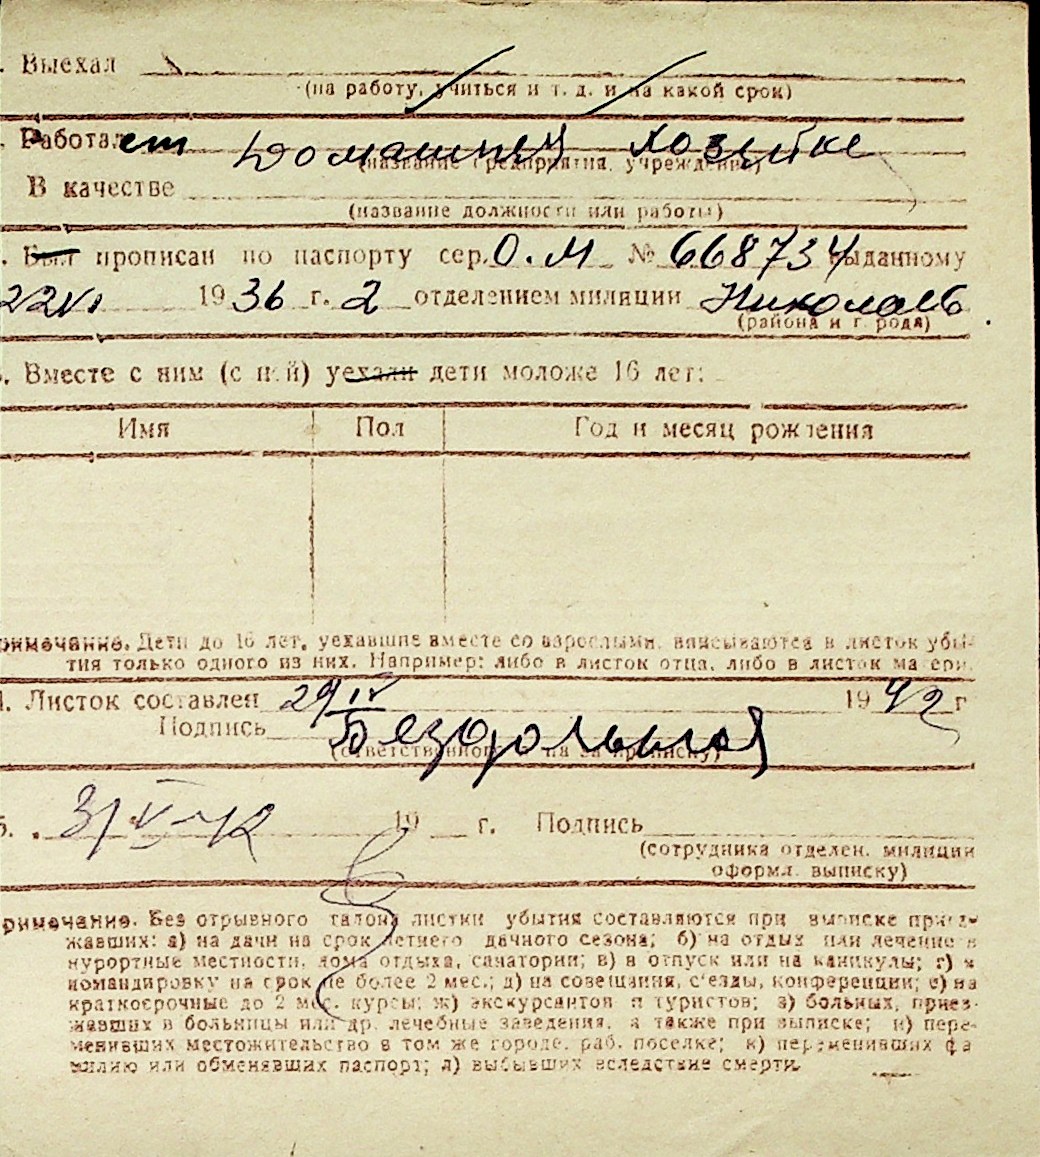 . Выехал
(на работу, учиться и т. д. и на какой срок)
. Работает Домашней хозяйке
(название предприятия, учреждения)
В качестве
(название должности или работы)
. Был прописан по паспорту сер. О. М № 668734 выданному
22 VI 1936 г. 2 отделением милиции Николаев
(района и города)
. Вместе с ним (с ней) уехали дети моложе 16 лет:
Имя Пол Год и месяц рождения
римечание. Дети до 16 лет, уехавшие вместе со взрослыми, вписываются в листок убы-
тия только одного из них. Например: либо в листок отца, либо в листок матери.
. Листок составлен 29 IV 1942 г
Подпись
(ответственного за прописку)
. 3/V-42 19 г. Подпись
(сотрудника отделен. милиции
оформл. выписку)
римечание. Без отрывного талона листки убытия составляются при выписке приез-
жавших: а) на дачи на срок летнего дачного сезона; б) на отдых или лечение в
курортные местности, дома отдыха, санатории; в) в отпуск или на каникулы; г) в
командировку на срок не более 2 мес.; д) на совещания, с'езды, конференции; е) на
краткосрочные до 2 мес. курсы; ж) экскурсантов и туристов; з) больных, приез-
жавших в больницы или др. лечебные заведения, а также при выписке; и) пере-
менивших местожительство в том же городе, раб. поселке; к) переменивших фа
милию или обменявших паспорт; л) выбывших вследствие смерти.